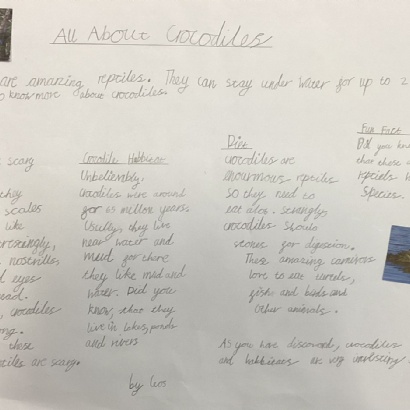 All About Crocodiles
are amazing reptiles. They can stay under water for up to 2
o know more about crocodiles.
scary
they
scales
like
eresingly,
nostrills
d eyes
ead.
, crocodiles
ong.
these
tiles are scary.
Crocodile Habbitat
Unbelievably,
crocodiles were around
for 65 million years.
Usually, they live
near water and
mud for there
they like mud and
water. Did you
know, that they
live in lakes, ponds
and rivers
by Leos
Diet
crocodiles are
enourmous reptiles
so they need to
eat alot.
crocodiles
stones for digestion.
These amazing carnivors
love to eat turtels,
fish and birds and
other animals.
Fun Fact
Did you kn
that these
reptiels h
species.
As you have discoverd, crocodiles
and habbitats are very intresting